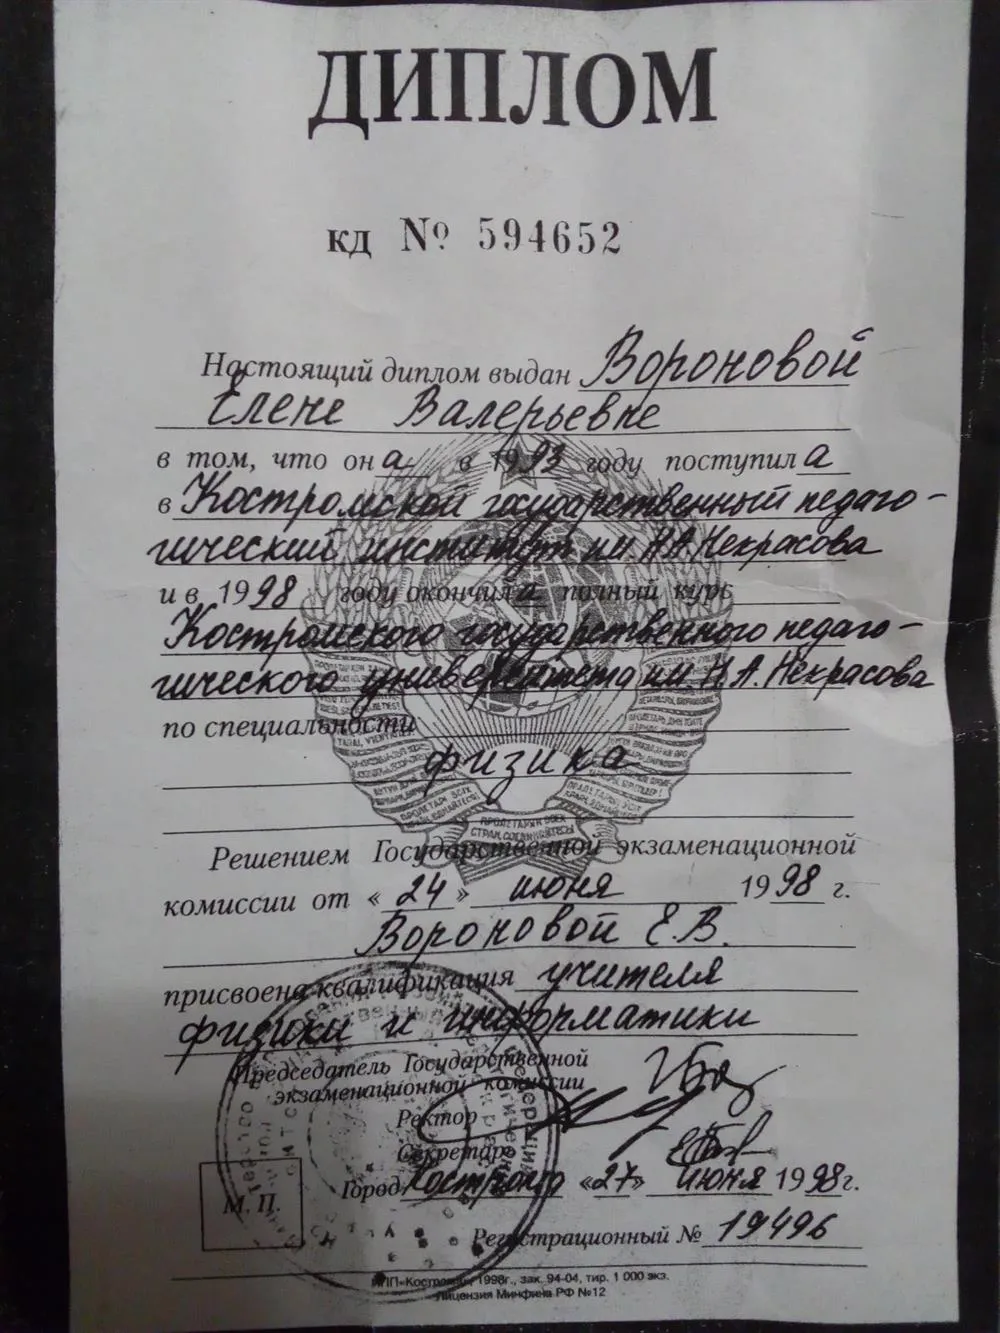 ДИПЛОМ
КД № 594652
Настоящий диплом выдан Вороновой
Елене Валерьевне
в том, что она в 1993 году поступила
в Костромской государственный педаго-
гический институт им Н.А.Некрасова
и в 1998 году окончила полный курс
Костромского государственного педаго-
гического университета им Н.А.Некрасова
по специальности
физика
Решением Государственной экзаменационной
комиссии от «24» июня 1998 г.
Вороновой Е.В.
присвоена квалификация учителя
физики и информатики
Председатель Государственной
экзаменационной комиссии
Ректор
Секретарь
Город Кострома «27» июня 1998г.
М. П.
Регистрационный № 19496
ИПП «Кострома», 1998г., зак. 94-04, тир. 1 000 экз.
Лицензия Минфина РФ №12